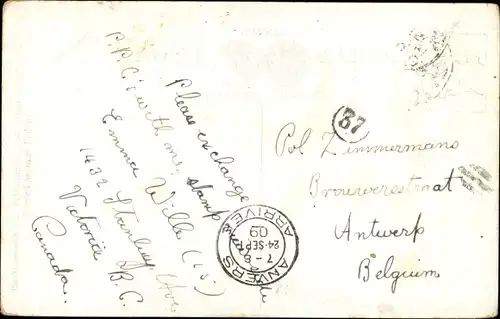 Please exchange
P.P.C's with me, stamp
Emma Wille (
1432 Stanley Ave
Victoria B.C.
Canada.
87
Pol Zimmermans
Brouwerestraat
Antwerp
Belgium
ANVERS
7 - 8
24 SEPT
09
ARRIVÉE